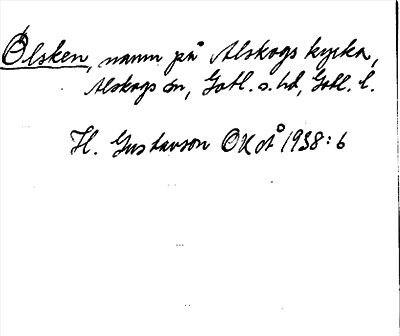 Ölsken, namn på Alskogs kyrka,
Alskogs sn, Gotl. s. hd, Gotl. l.
H. Gustavson OKOÅ 1938:6